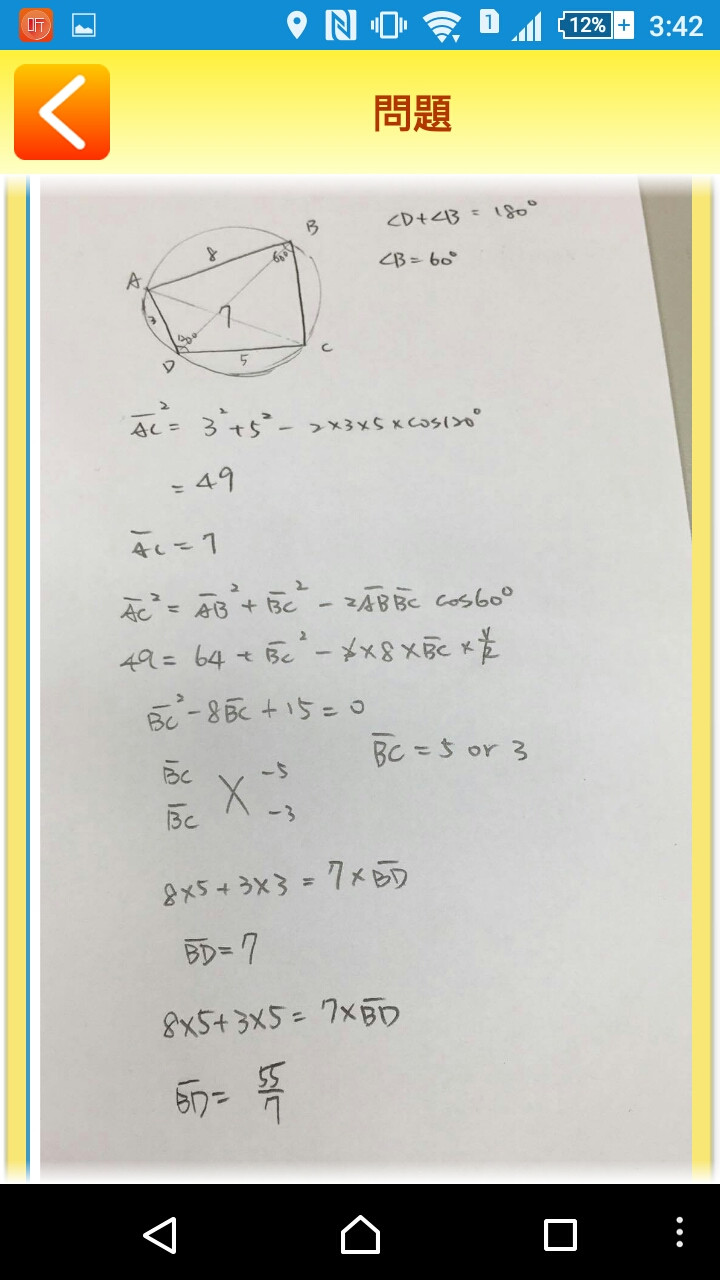 听 1 12% 3:42
問題
∠D+∠B = 180°
∠B = 60°
B
8
60°
A
7
3
120°
D
5
C
A̅C̅² = 3²+5² - 2×3×5×cos120°
= 49
A̅C̅ = 7
A̅C̅² = A̅B̅² + B̅C̅² - 2A̅B̅ B̅C̅ cos60°
49 = 64 + B̅C̅² - 2×8×B̅C̅×1/2
B̅C̅² - 8B̅C̅ + 15 = 0
B̅C̅ = 5 or 3
B̅C̅ -5
B̅C̅ -3
8×5+3×3 = 7×B̅D̅
B̅D̅ = 7
8×5+3×5 = 7×B̅D̅
B̅D̅ = 55/7